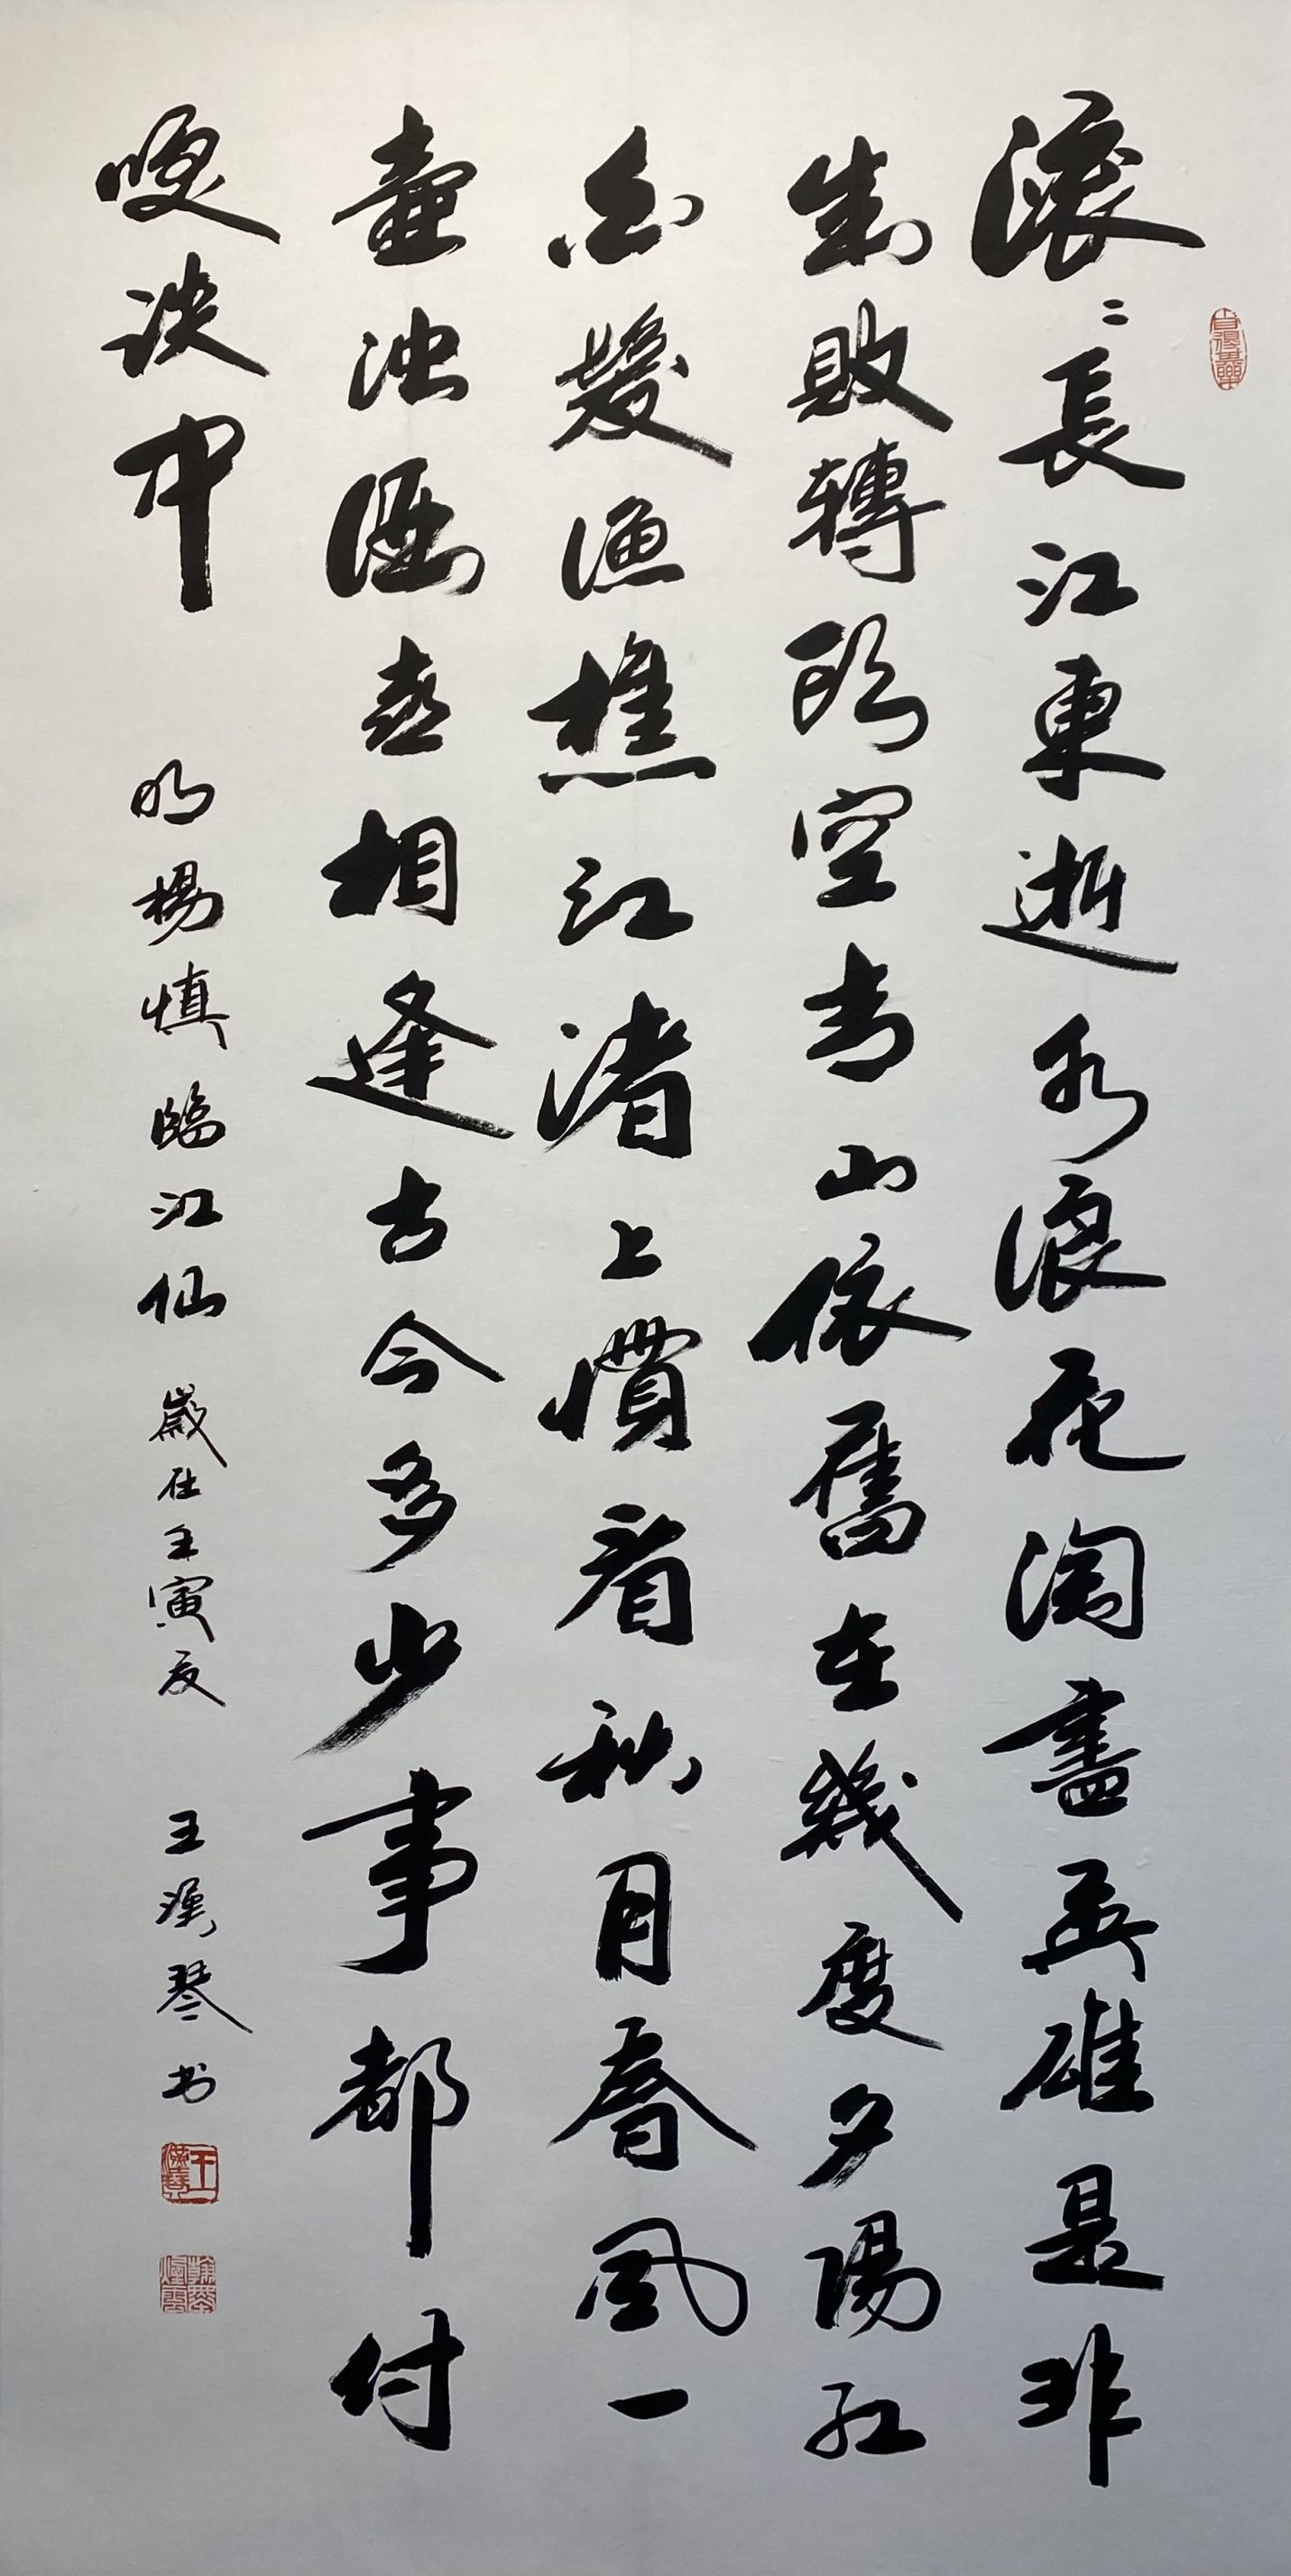 滚〻長江東逝水浪花淘盡英雄是非
成敗轉頭空青山依舊在幾度夕陽紅
白髮漁樵江渚上慣看秋月春風一
壺濁酒喜相逢古今多少事都付
咲談中
明楊慎臨江仙 歲在壬寅夏 王漢琴书